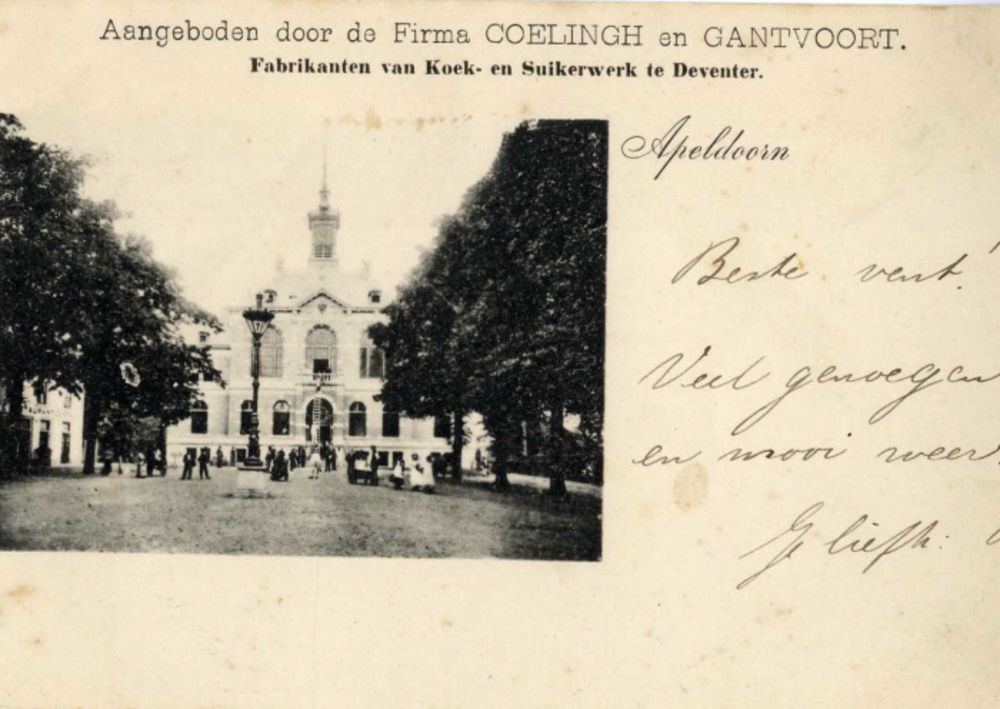 Aangeboden door de Firma COELINGH en GANTVOORT.
Fabrikanten van Koek- en Suikerwerk te Deventer.
Apeldoorn
Beste vent!
Veel genoegen
en mooi weer.
Je liefh.